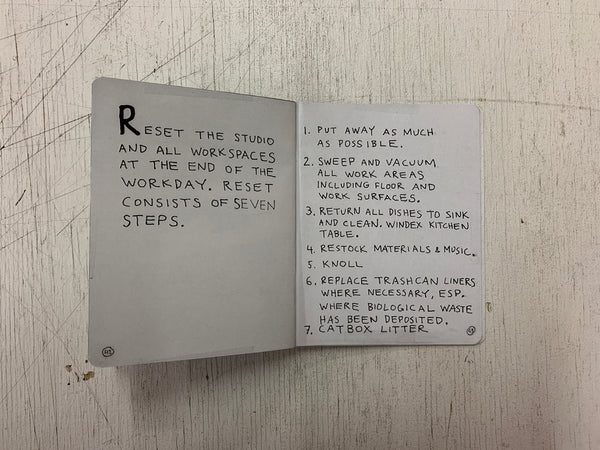 RESET THE STUDIO
AND ALL WORKSPACES
AT THE END OF THE
WORKDAY. RESET
CONSISTS OF SEVEN
STEPS.
1. PUT AWAY AS MUCH
AS POSSIBLE.
2. SWEEP AND VACUUM
ALL WORK AREAS
INCLUDING FLOOR AND
WORK SURFACES.
3. RETURN ALL DISHES TO SINK
AND CLEAN. WINDEX KITCHEN
TABLE.
4. RESTOCK MATERIALS & MUSIC.
5. KNOLL
6. REPLACE TRASHCAN LINERS
WHERE NECESSARY, ESP.
WHERE BIOLOGICAL WASTE
HAS BEEN DEPOSITED.
7. CATBOX LITTER